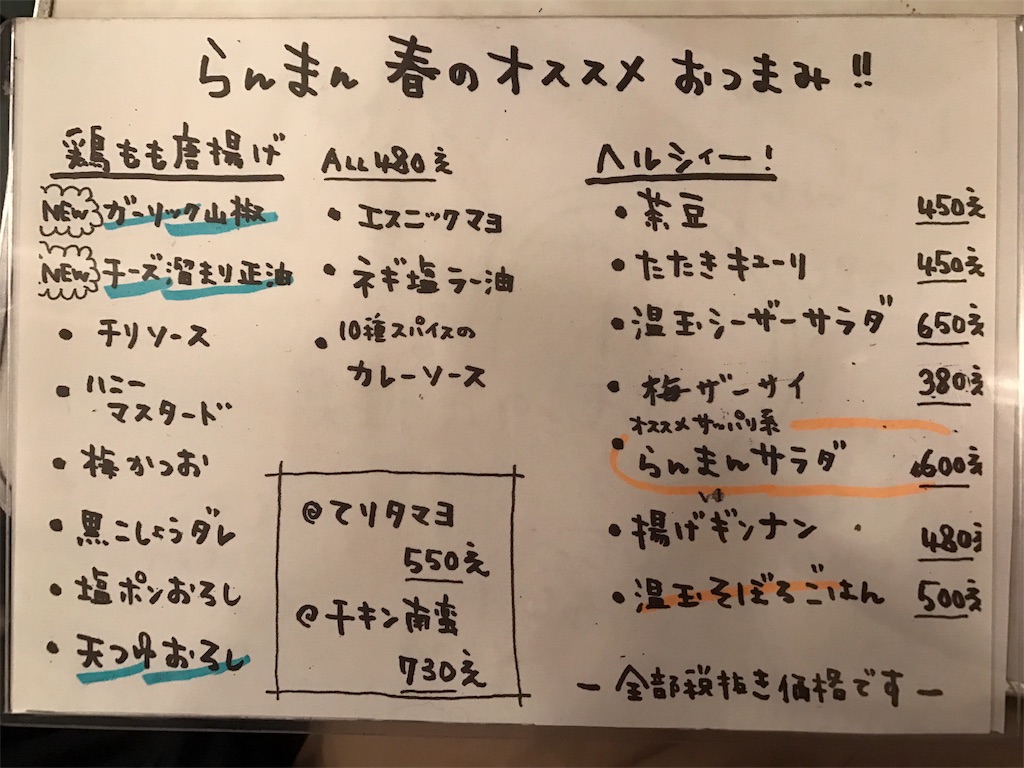 らんまん 春のオススメ おつまみ!!
鶏もも唐揚げ ALL480え
NEW ガーリック山椒
NEW チーズ溜まり正油
・チリソース
・ハニー
マスタード
・梅かつお
・黒こしょうダレ
・塩ポンおろし
・天つゆおろし
・エスニックマヨ
・ネギ塩ラー油
・10種スパイスの
カレーソース
@てリタマヨ
550え
@チキン南蛮
730え
ヘルシィー!
・茶豆 450え
・たたきキューリ 450え
・温玉シーザーサラダ 650え
・梅ザーサイ 380え
オススメサッパリ系
・らんまんサラダ 600え
・揚げギンナン 480え
・温玉そぼろごはん 500え
ー全部税抜き価格ですー